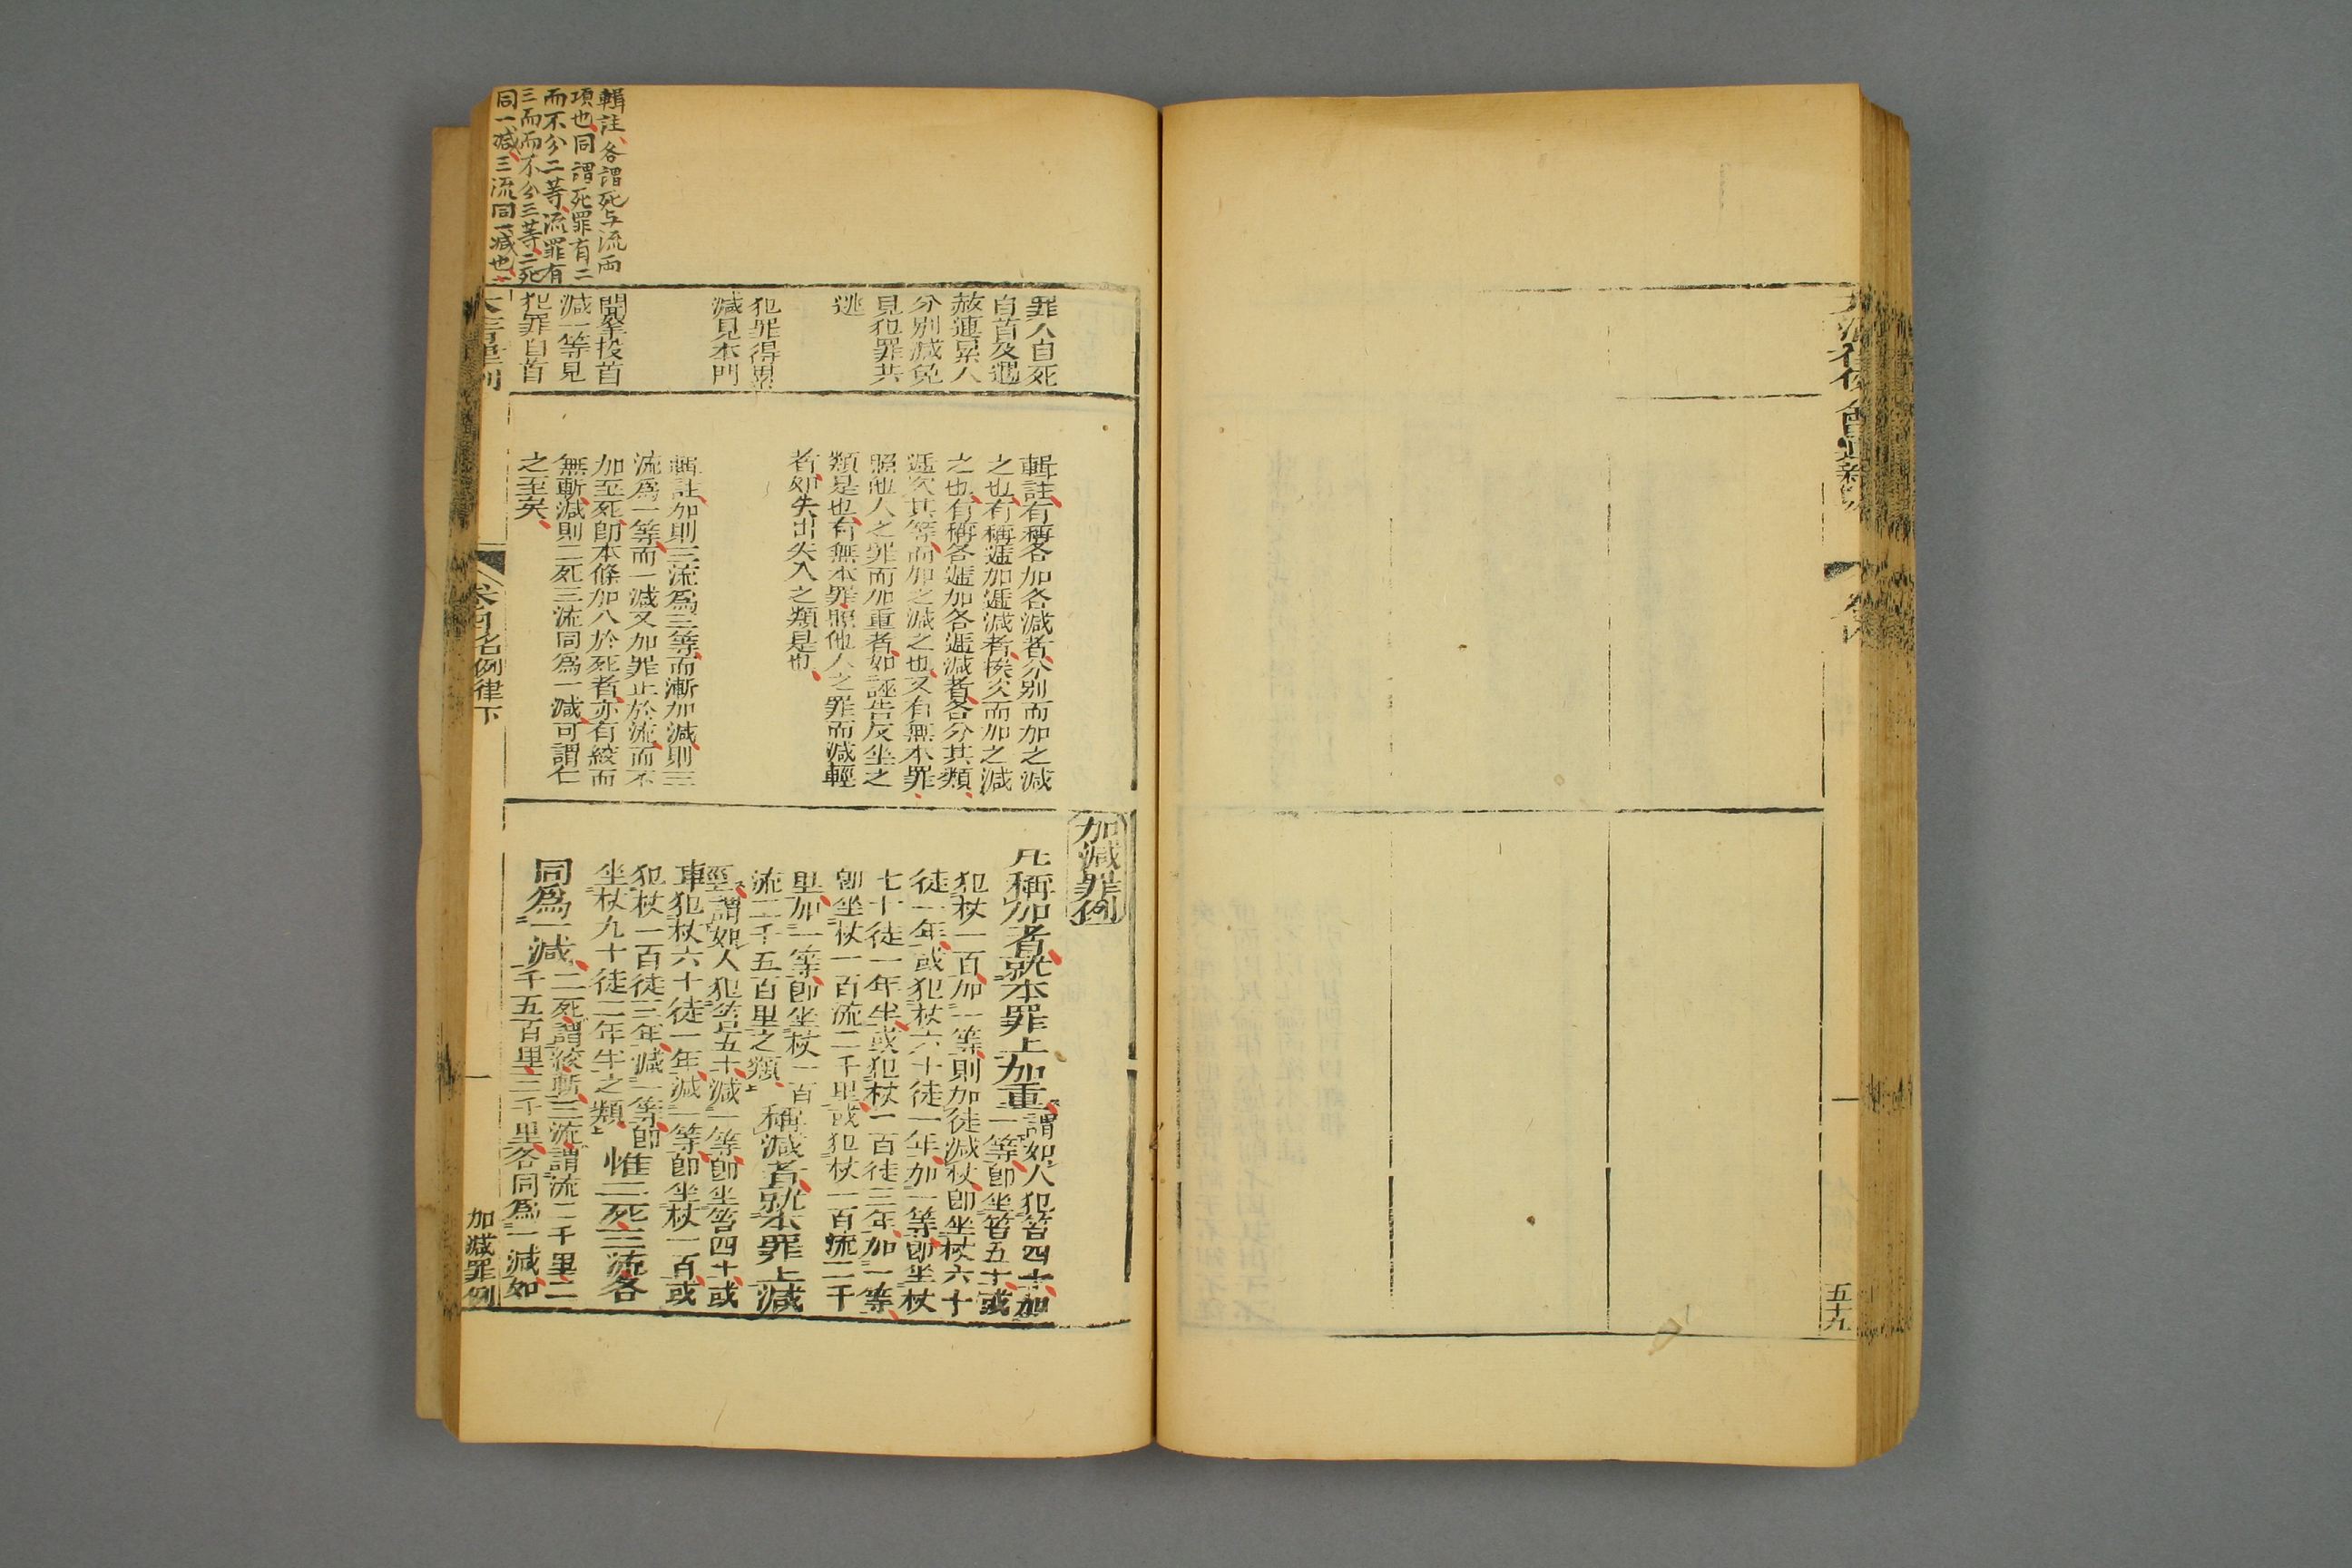 五十九
輯註各謂死与流兩
項也同謂死罪有二
而不分二等流罪有
三而不分三等二死
同一減三流同一減也
罪人自死
自首及遇
赦連累人
分別減免
見犯罪共
逃
犯罪得累
減見本門
聞拏投首
減一等見
犯罪自首
輯註有稱各加各減者分別而加之減
之也有稱遞加遞減者挨次而加之減
之也有稱各遞加各遞減者各分其類
遞次其等而加之減之也又有無本罪
照他人之罪而加重者如誣告反坐之
類是也有無本罪照他人之罪而減輕
者如失出失入之類是也
輯註加則三流爲三等而漸加減則三
流爲一等而一減又加罪止於流而不
加至死卽本條加入於死者亦有絞而
無斬減則二死三流同爲一減可謂仁
之至矣
加減罪例
凡稱加者就本罪上加重謂如人犯笞四十加
一等卽坐笞五十或
犯杖一百加一等則加徒減杖卽坐杖六十
徒一年或犯杖六十徒一年加一等卽坐杖
七十徒一年半或犯杖一百徒三年加一等
卽坐杖一百流二千里或犯杖一百流二千
里加一等卽坐杖一百
流二千五百里之類稱減者就本罪上減
輕謂如人犯笞五十減一等卽坐笞四十或
犯杖六十徒一年減一等卽坐杖一百或
犯杖一百徒三年減一等卽
坐杖九十徒二年半之類惟二死三流各
同爲一減二死謂絞斬三流謂流二千里二
千五百里三千里各同爲一減如
卷四名例律下
一
加減罪例